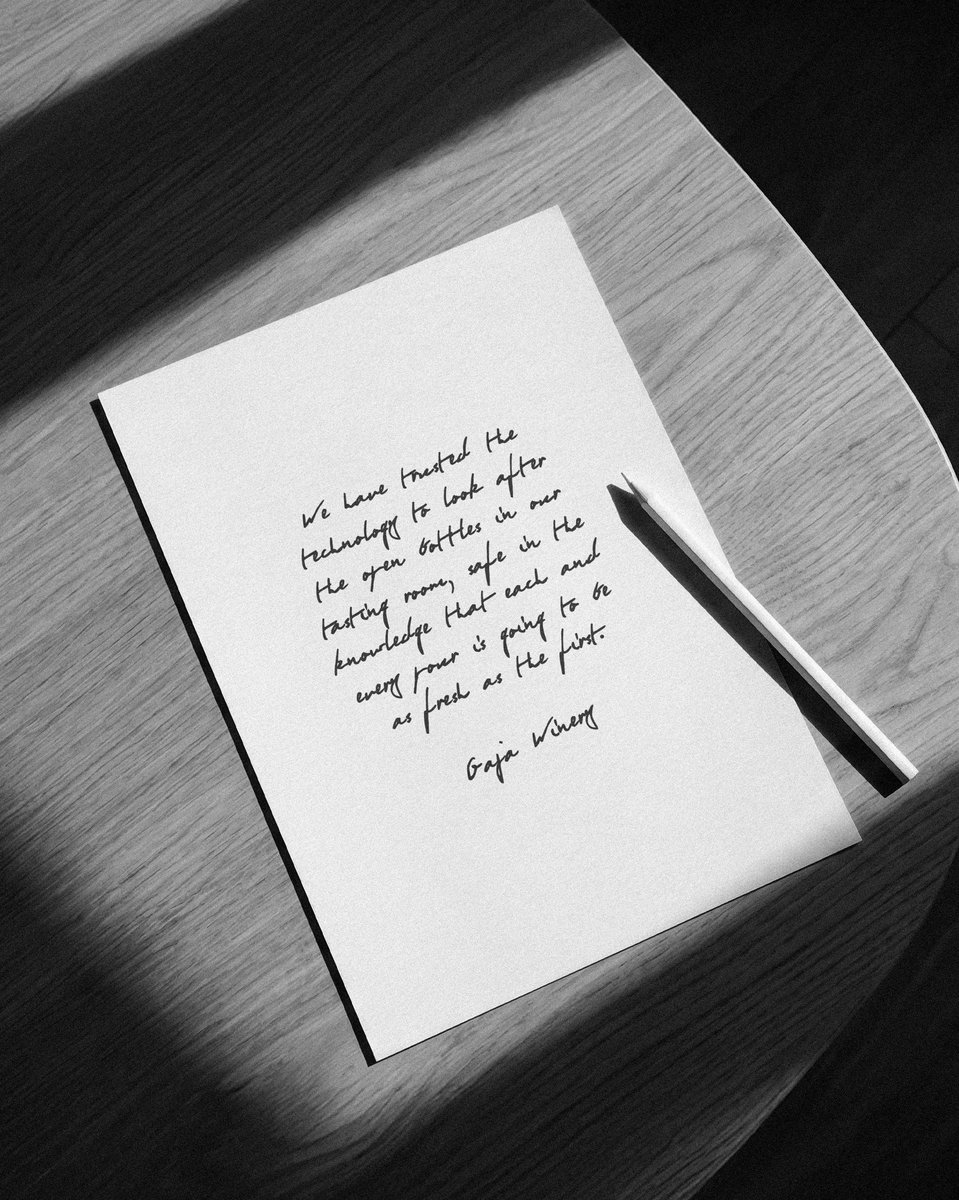 We have trusted the
technology to look after
the open bottles in our
tasting room, safe in the
knowledge that each and
every pour is going to be
as fresh as the first.
Gaja Winery